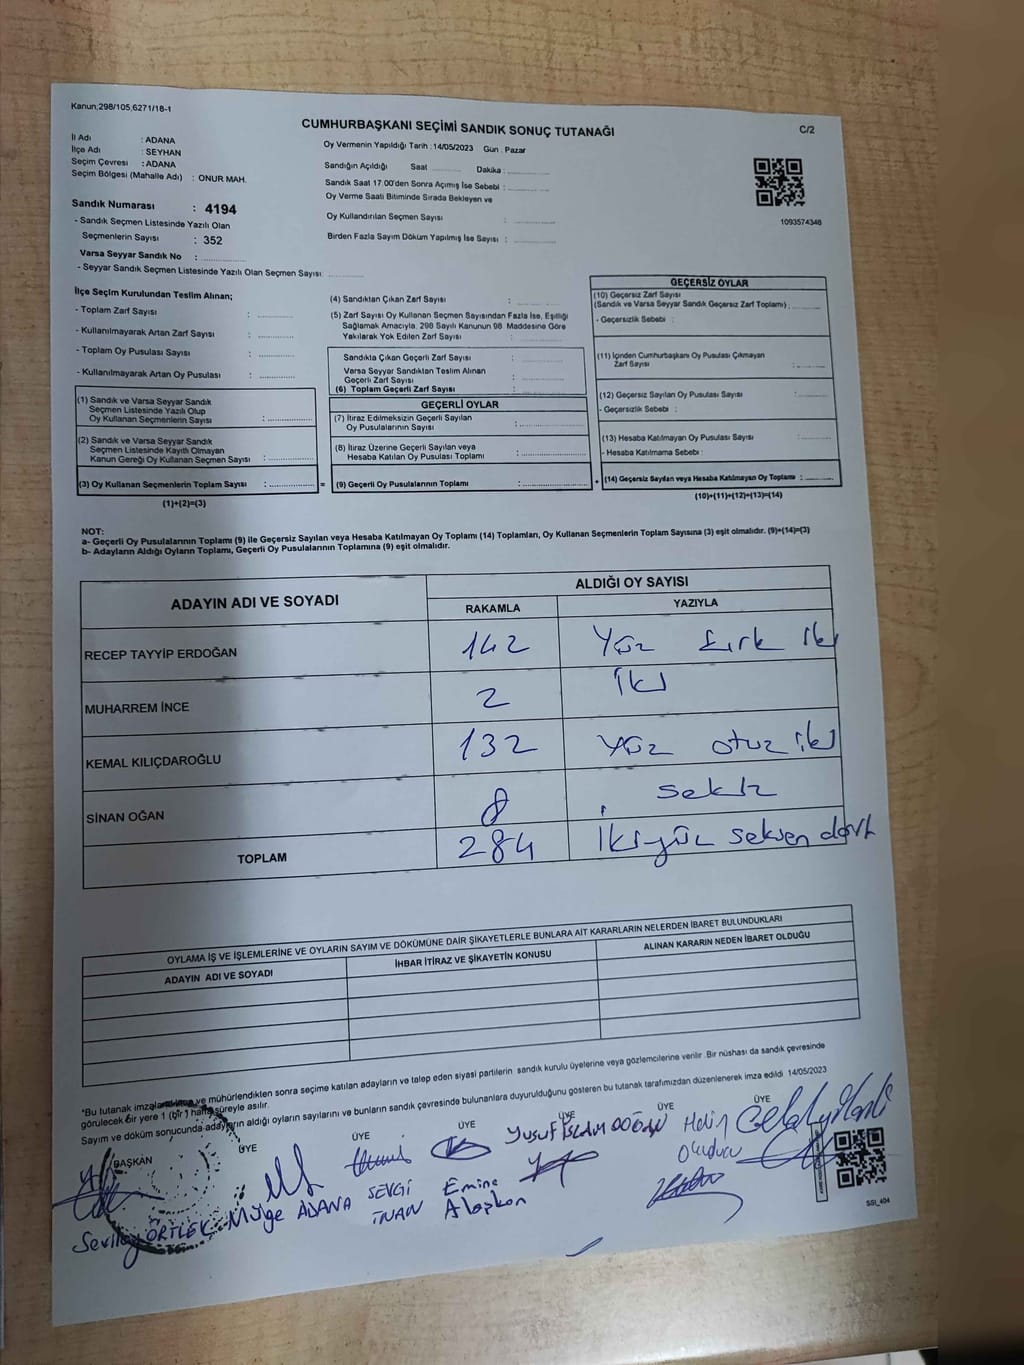 Kanun,298/105,6271/18-1
CUMHURBAŞKANI SEÇİMİ SANDIK SONUÇ TUTANAĞI
C/2
İl Adı : ADANA
İlçe Adı : SEYHAN
Seçim Çevresi : ADANA
Seçim Bölgesi (Mahalle Adı) : ONUR MAH.
Oy Vermenin Yapıldığı Tarih :14/05/2023 Gün : Pazar
Sandığın Açıldığı Saat ........... Dakika : ...........
Sandık Saat 17:00'den Sonra Açımış İse Sebebi : ...........
Oy Verme Saati Bitiminde Sırada Bekleyen ve
Oy Kullandırılan Seçmen Sayısı : ...........
Birden Fazla Sayım Döküm Yapılmış İse Sayısı : ...........
1093574348
Sandık Numarası : 4194
- Sandık Seçmen Listesinde Yazılı Olan
Seçmenlerin Sayısı : 352
Varsa Seyyar Sandık No : ...........
- Seyyar Sandık Seçmen Listesinde Yazılı Olan Seçmen Sayısı: ...........
İlçe Seçim Kurulundan Teslim Alınan;
- Toplam Zarf Sayısı : ...........
- Kullanılmayarak Artan Zarf Sayısı : ...........
- Toplam Oy Pusulası Sayısı : ...........
- Kullanılmayarak Artan Oy Pusulası : ...........
(1) Sandık ve Varsa Seyyar Sandık
Seçmen Listesinde Yazılı Olup
Oy Kullanan Seçmenlerin Sayısı : ...........
(2) Sandık ve Varsa Seyyar Sandık
Seçmen Listesinde Kayıtlı Olmayan
Kanun Gereği Oy Kullanan Seçmen Sayısı : ...........
(3) Oy Kullanan Seçmenlerin Toplam Sayısı : ........... =
(1)+(2)=(3)
(4) Sandıktan Çıkan Zarf Sayısı : ...........
(5) Zarf Sayısı Oy Kullanan Seçmen Sayısından Fazla İse, Eşitliği
Sağlamak Amacıyla, 298 Sayılı Kanunun 98. Maddesine Göre
Yakılarak Yok Edilen Zarf Sayısı : ...........
Sandıkta Çıkan Geçerli Zarf Sayısı : ...........
Varsa Seyyar Sandıktan Teslim Alınan
Geçerli Zarf Sayısı : ...........
(6) Toplam Geçerli Zarf Sayısı : ...........
GEÇERLİ OYLAR
(7) İtiraz Edilmeksizin Geçerli Sayılan
Oy Pusulalarının Sayısı : ...........
(8) İtiraz Üzerine Geçerli Sayılan veya
Hesaba Katılan Oy Pusulası Toplamı : ...........
(9) Geçerli Oy Pusulalarının Toplamı : ........... +
GEÇERSİZ OYLAR
(10) Geçersiz Zarf Sayısı
(Sandık ve Varsa Seyyar Sandık Geçersiz Zarf Toplamı) : ...........
- Geçersizlik Sebebi :
(11) İçinden Cumhurbaşkanı Oy Pusulası Çıkmayan
Zarf Sayısı : ...........
(12) Geçersiz Sayılan Oy Pusulası Sayısı : ...........
- Geçersizlik Sebebi :
(13) Hesaba Katılmayan Oy Pusulası Sayısı : ...........
- Hesaba Katılmama Sebebi :
(14) Geçersiz Sayılan veya Hesaba Katılmayan Oy Toplamı : ...........
(10)+(11)+(12)+(13)=(14)
NOT:
a- Geçerli Oy Pusulalarının Toplamı (9) ile Geçersiz Sayılan veya Hesaba Katılmayan Oy Toplamı (14) Toplamları, Oy Kullanan Seçmenlerin Toplam Sayısına (3) eşit olmalıdır. (9)+(14)=(3)
b- Adayların Aldığı Oyların Toplamı, Geçerli Oy Pusulalarının Toplamına (9) eşit olmalıdır.
ADAYIN ADI VE SOYADI
ALDIĞI OY SAYISI
RAKAMLA YAZIYLA
RECEP TAYYİP ERDOĞAN 142 Yüz kırk iki
MUHARREM İNCE 2 İki
KEMAL KILIÇDAROĞLU 132 Yüz otuz iki
SİNAN OĞAN 8 sekiz
TOPLAM 284 İkiyüz seksen dört
OYLAMA İŞ VE İŞLEMLERİNE VE OYLARIN SAYIM VE DÖKÜMÜNE DAİR ŞİKAYETLERLE BUNLARA AİT KARARLARIN NELERDEN İBARET BULUNDUKLARI
ADAYIN ADI VE SOYADI İHBAR İTİRAZ VE ŞİKAYETİN KONUSU ALINAN KARARIN NEDEN İBARET OLDUĞU
*Bu tutanak imzalanıp ve mühürlendikten sonra seçime katılan adayların ve talep eden siyasi partilerin sandık kurulu üyelerine veya gözlemcilerine verilir. Bir nüshası da sandık çevresinde
görülecek bir yere 1 (bir) hafta süreyle asılır.
Sayım ve döküm sonucunda adayların aldığı oyların sayılarını ve bunların sandık çevresinde bulunanlara duyurulduğunu gösteren bu tutanak tarafımızdan düzenlenerek imza edildi. 14/05/2023
BAŞKAN ÜYE ÜYE ÜYE ÜYE ÜYE ÜYE
Sevilay ÖRTLEK
Müge ADANA
SEVGİ İNAN
Emine Alaşkan
YUSUF İSLAM DOĞAN
Okuducu
SSİ_404